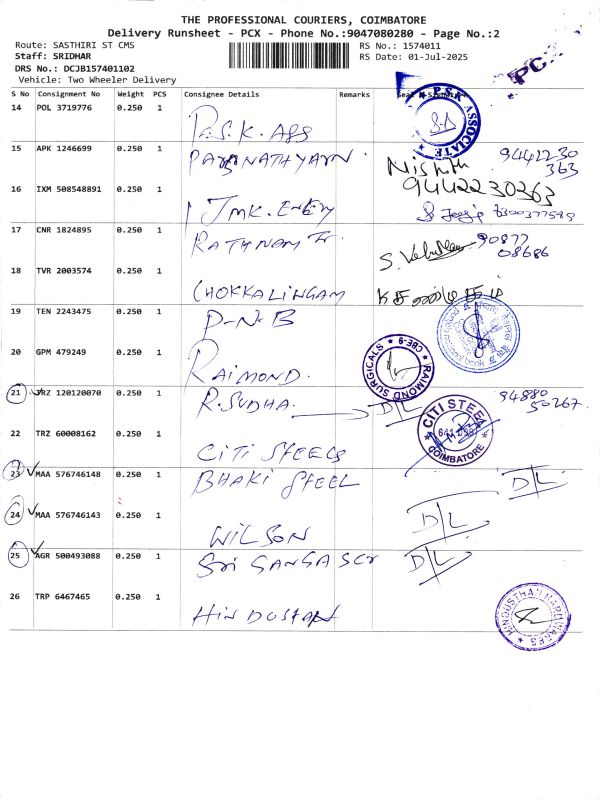 THE PROFESSIONAL COURIERS, COIMBATORE
Delivery Runsheet - PCX - Phone No.:9047080280 - Page No.:2
Route: SASTHIRI ST CMS
RS No.: 1574011
Staff: SRIDHAR
RS Date: 01-Jul-2025
DRS No.: DCJB157401102
Vehicle: Two Wheeler Delivery
PC
S No Consignment No Weight PCS Consignee Details Remarks
14 POL 3719776 0.250 1 P.S.K. ASS
P.S.K ASSOCIATE
15 APK 1246699 0.250 1 9442230
363
16 IXM 508548891 0.250 1 JMK. 9442230363
17 CNR 1824895 0.250 1 RATHNAM Tr. 90877
08686
18 TVR 2003574 0.250 1 CHOKKALINGAM
19 TEN 2243475 0.250 1 P-N-B
20 GPM 479249 0.250 1 RAIMOND.
RAIMOND SURGICALS CBE-9
21 JRZ 120120070 0.250 1 R. SUDHA. D/L 94880
50267
22 TRZ 60008162 0.250 1 CITI STEELS
CITI STEEL
COIMBATORE
23 MAA 576746148 0.250 1 BHAKI STEEL D/L
24 MAA 576746143 0.250 1 WILSON D/L
25 AGR 500493088 0.250 1 Sri GANGA D/L
26 TRP 6467465 0.250 1 HINDUSTAN
HINDUSTHAN